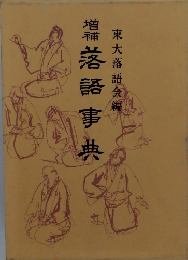 東大落語会編
増補
落語事典